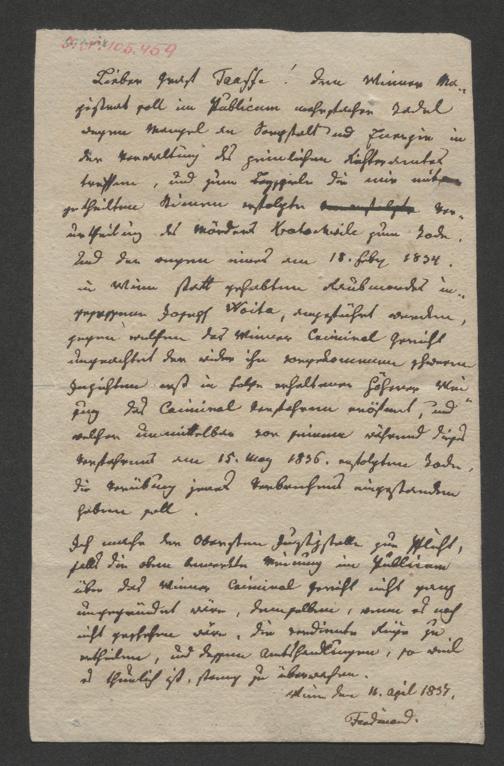 105.459
Lieber Graf Taaffe! dem Wiener Ma-
gistrat soll im Publicum mehrfacher Tadel
wegen Mangel an Sorgfalt und Energie in
der Verwaltung des peinlichen Richteramtes
treffen, und zum Beyspiele die mir mit
getheilten Stimmen erfolgte Ver-
urtheilung des Mörders zum Tode,
und der wegen eines am 18. Feby 1834.
in Wien statt gehabten Raubmordes in-
gegessene Joseph Woita, angeführt werden,
gegen welchen das Wiener Criminal Gericht
ungeachtet der wider ihn vorgekommenen schweren
Inzichten erst in Folge erhaltener höherer Wei-
sung das Criminal Verfahren eröffnet, und
welcher unmittelbar vor seinem während dieses
Verfahrens am 15. May 1836. erfolgten Tode,
die Verübung jenes Verbrechens eingestanden
haben soll.
Ich mache der Obersten Justizstelle zur Pflicht,
falls die oben bemerkte Meinung im Publicum
über das Wiener Criminal Gericht nicht ganz
ungegründet wäre, demselben, wenn es noch
nicht geschehen wäre, die verdiente Rüge zu
ertheilen, und dessen Amtshandlungen, so viel
es thunlich ist, streng zu überwachen.
Wien den 16. April 1837.
Ferdinand.